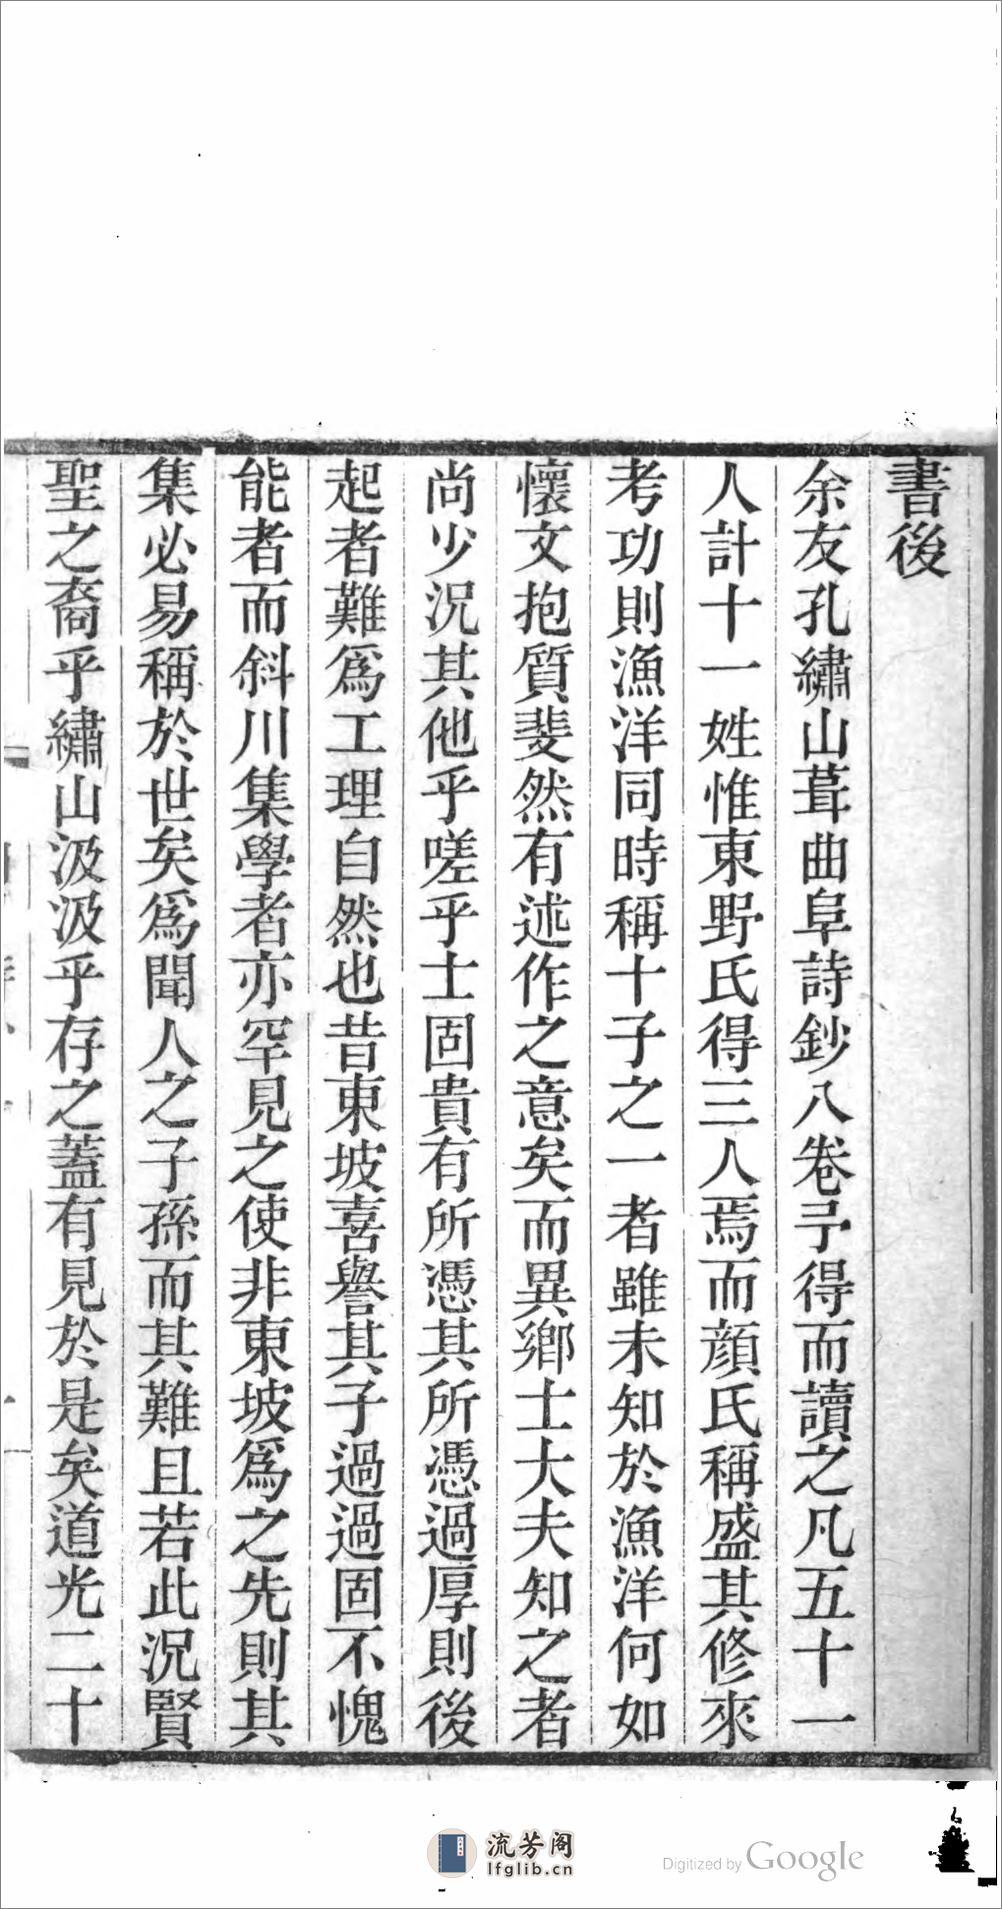 書後
余友孔繡山葺曲阜詩鈔八卷予得而讀之凡五十一
人計十一姓惟東野氏得三人焉而顔氏稱盛其修來
考功則漁洋同時稱十子之一者雖未知於漁洋何如
懷文抱質斐然有述作之意矣而異鄉士大夫知之者
尚少況其他乎嗟乎士固貴有所憑其所憑過厚則後
起者難爲工理自然也昔東坡喜譽其子過過固不愧
能者而斜川集學者亦罕見之使非東坡爲之先則其
集必易稱於世矣爲聞人之子孫而其難且若此況賢
聖之裔乎繡山汲汲乎存之蓋有見於是矣道光二十
流芳阁
lfglib.cn
Digitized by Google